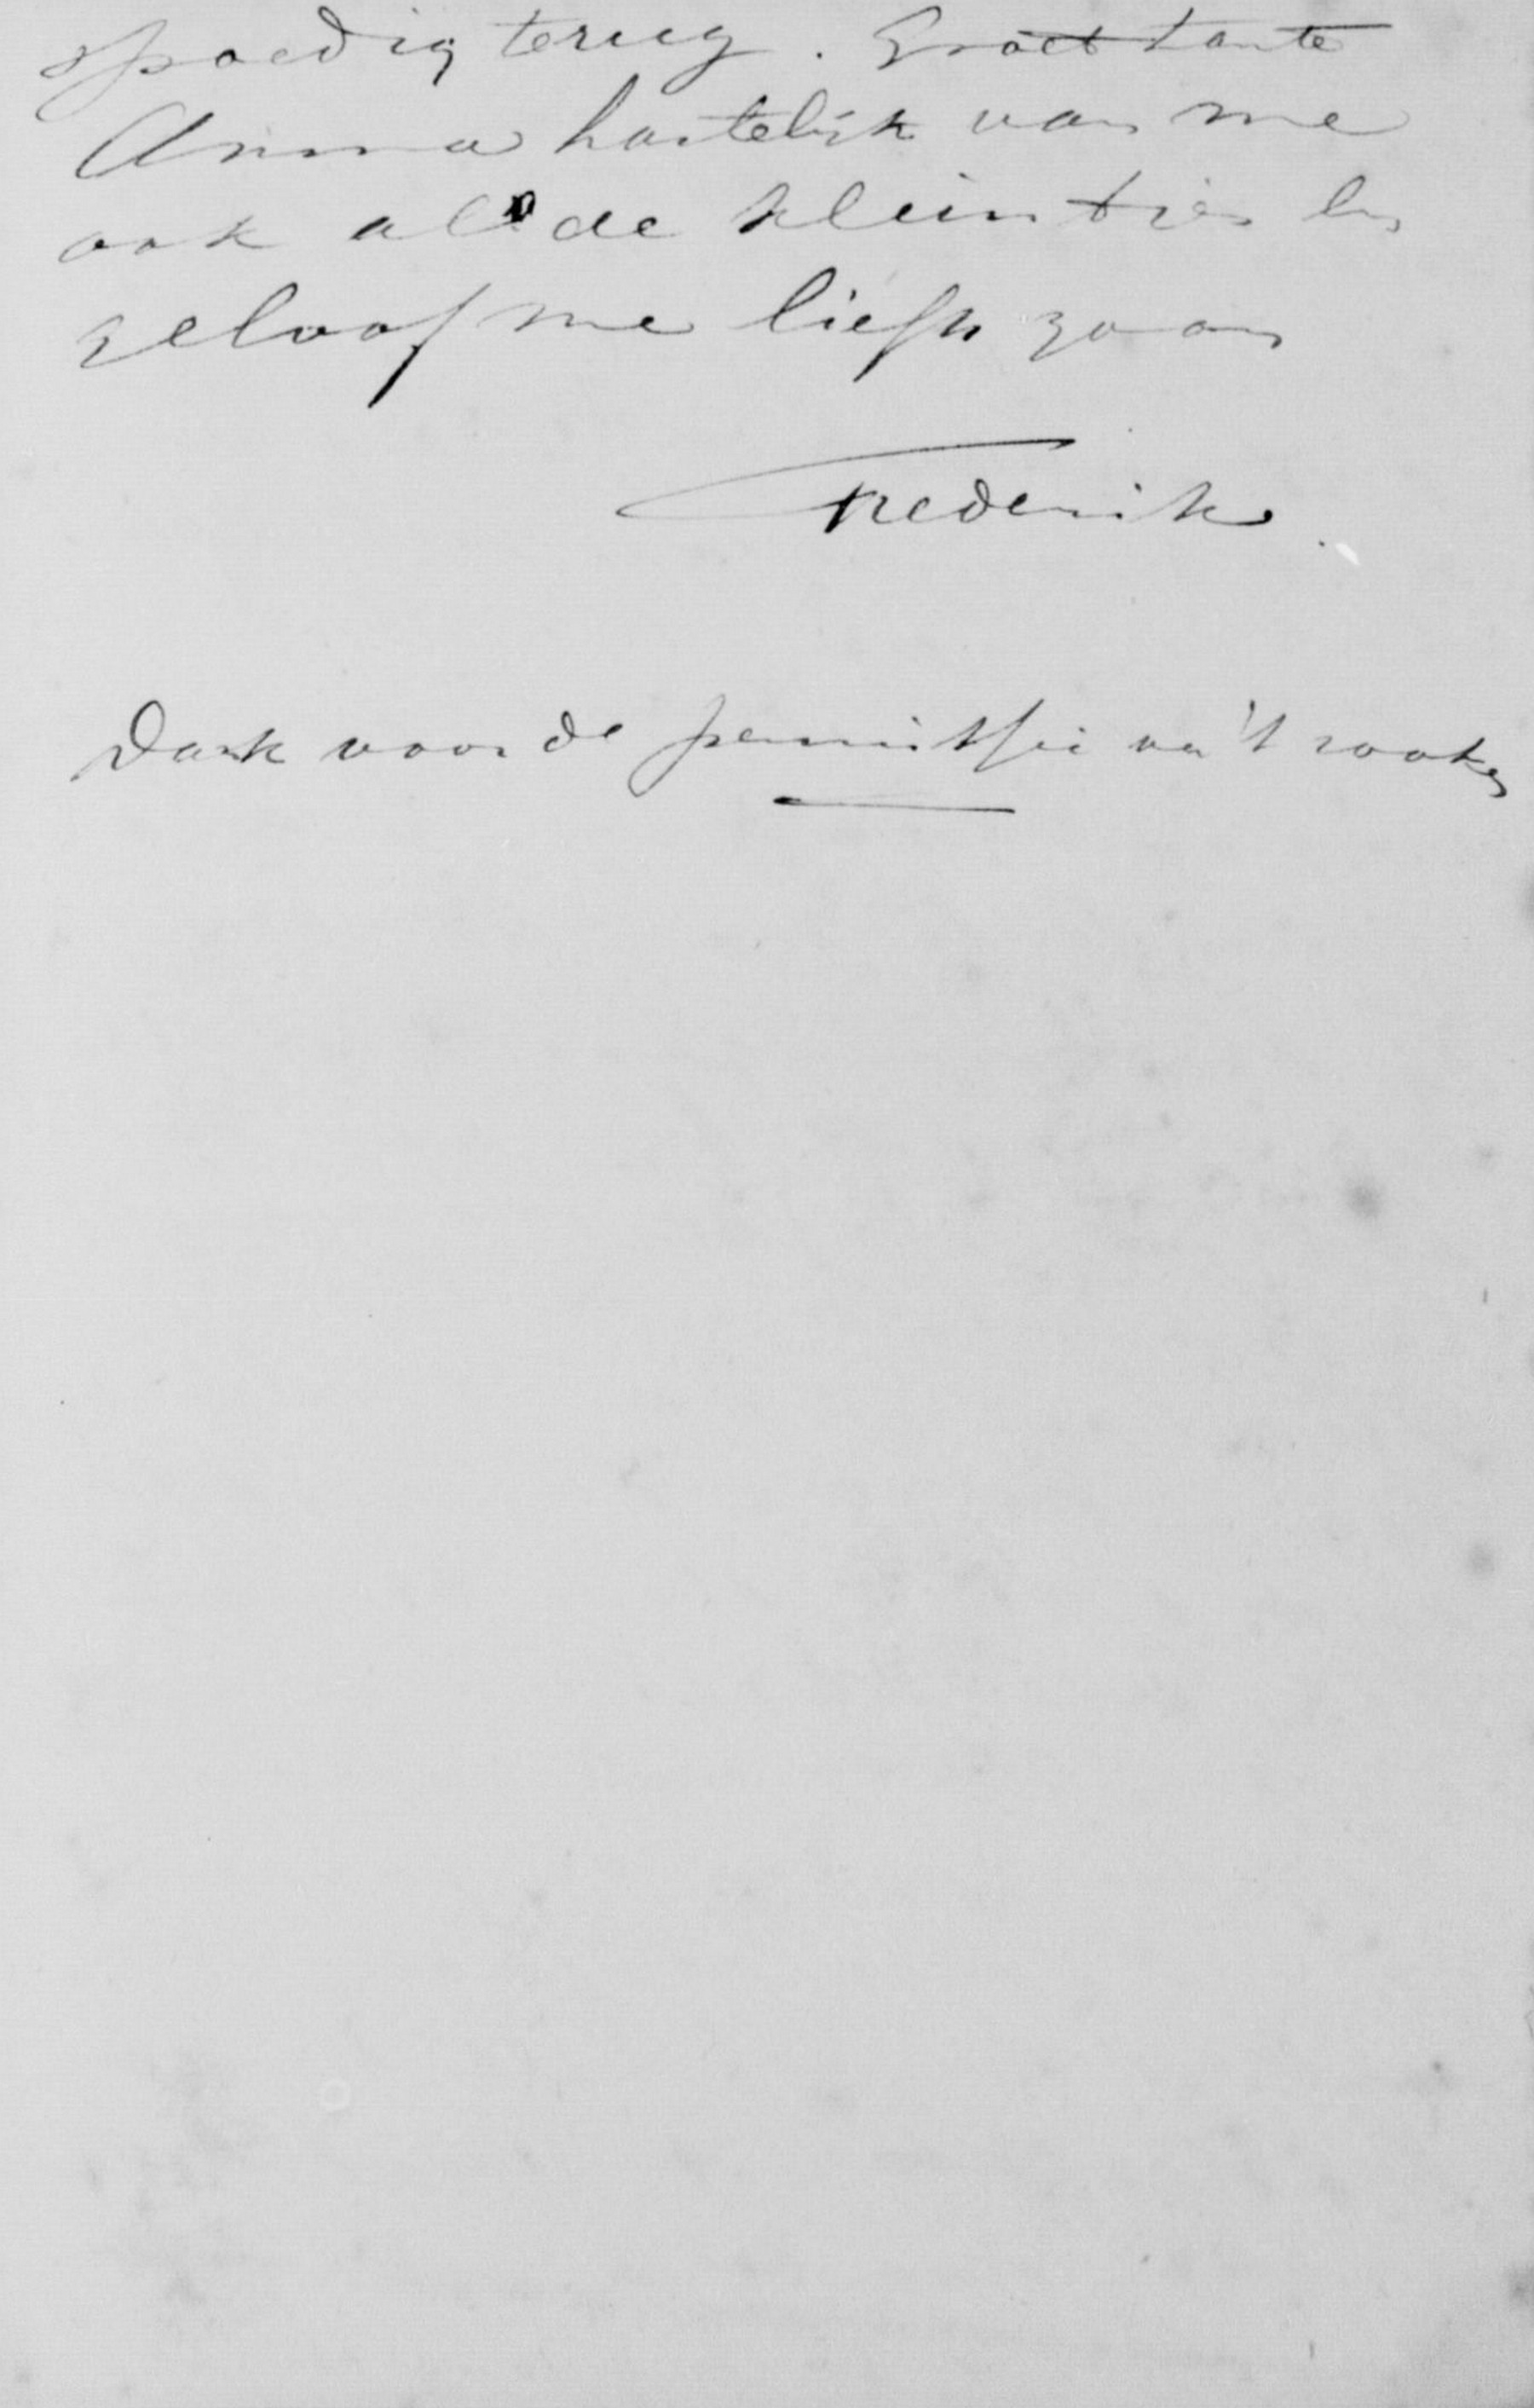 spoedig terug. Groet tante
Anna hartelijk van me
ook al de kleintjes en
geloof me liefh zoon
Frederik.
Dank voor de permissie van 't rooken